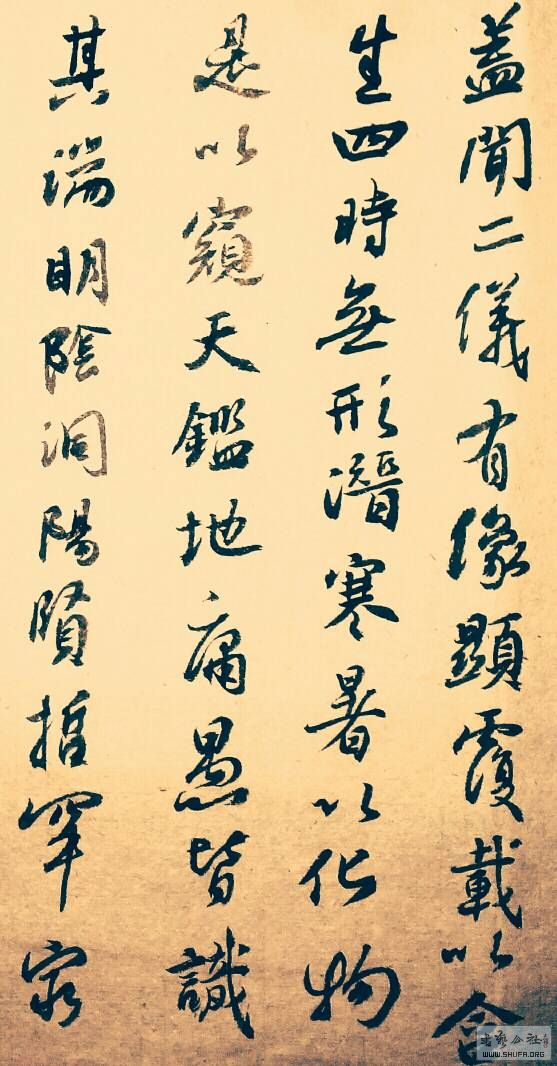 蓋聞二儀有像顯覆載以含
生四時無形潛寒暑以化物
是以窺天鑑地庸愚皆識
其端明陰洞陽賢哲罕窮
書藝公社
WWW.SHUFA.ORG